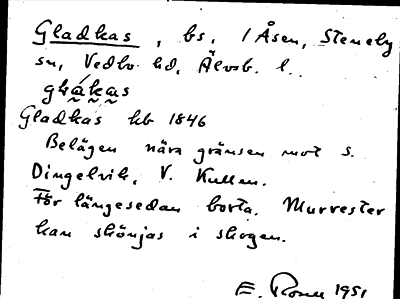 Gladkas, bs, / Åsen, Steneby
sn, Vedbo hd, Älvsb. l.
glákas
Gladkas hb 1846
Belägen nära gränsen mot S.
Dingelvik, V. Kullen.
För längesedan borta. Murrester
kan skönjas i skogen.
E. 1951